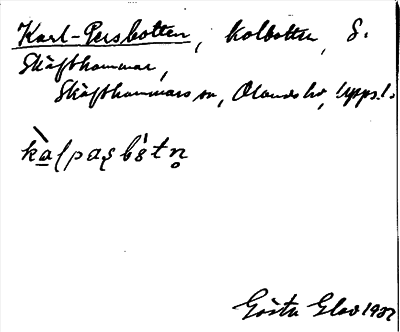 Karl-Persbotten, kolbotten, S.
Skäfthammar,
Skäfthammars sn, Olands hd, Upps.l.
kalpasbotn
Gösta Elov 1932